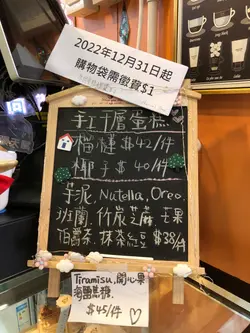 2022年12月31日起
購物袋需徵費$1
手工千層蛋糕
榴槤 $42/件
椰子 $40/件
芋泥, Nutella, Oreo,
班蘭, 竹炭芝麻, 芒果
伯爵茶, 抹茶紅豆 $38/件
Tiramisu, 開心果
海鹽焦糖.
$45/件